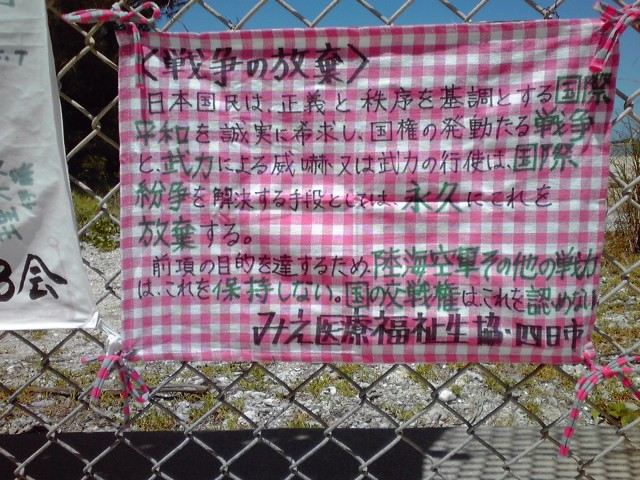 〈戦争の放棄〉
日本国民は、正義と秩序を基調とする国際
平和を誠実に希求し、国権の発動たる戦争
と、武力による威嚇又は武力の行使は、国際
紛争を解決する手段としては、永久にこれを
放棄する。
前項の目的を達するため、陸海空軍その他の戦力
は、これを保持しない。国の交戦権は、これを認めない。
みえ医療福祉生協・四日市
る会